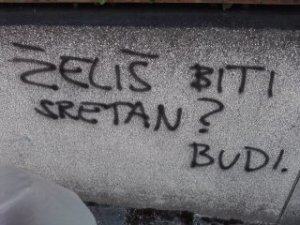 ŽELIŠ BITI
SRETAN?
BUDI.